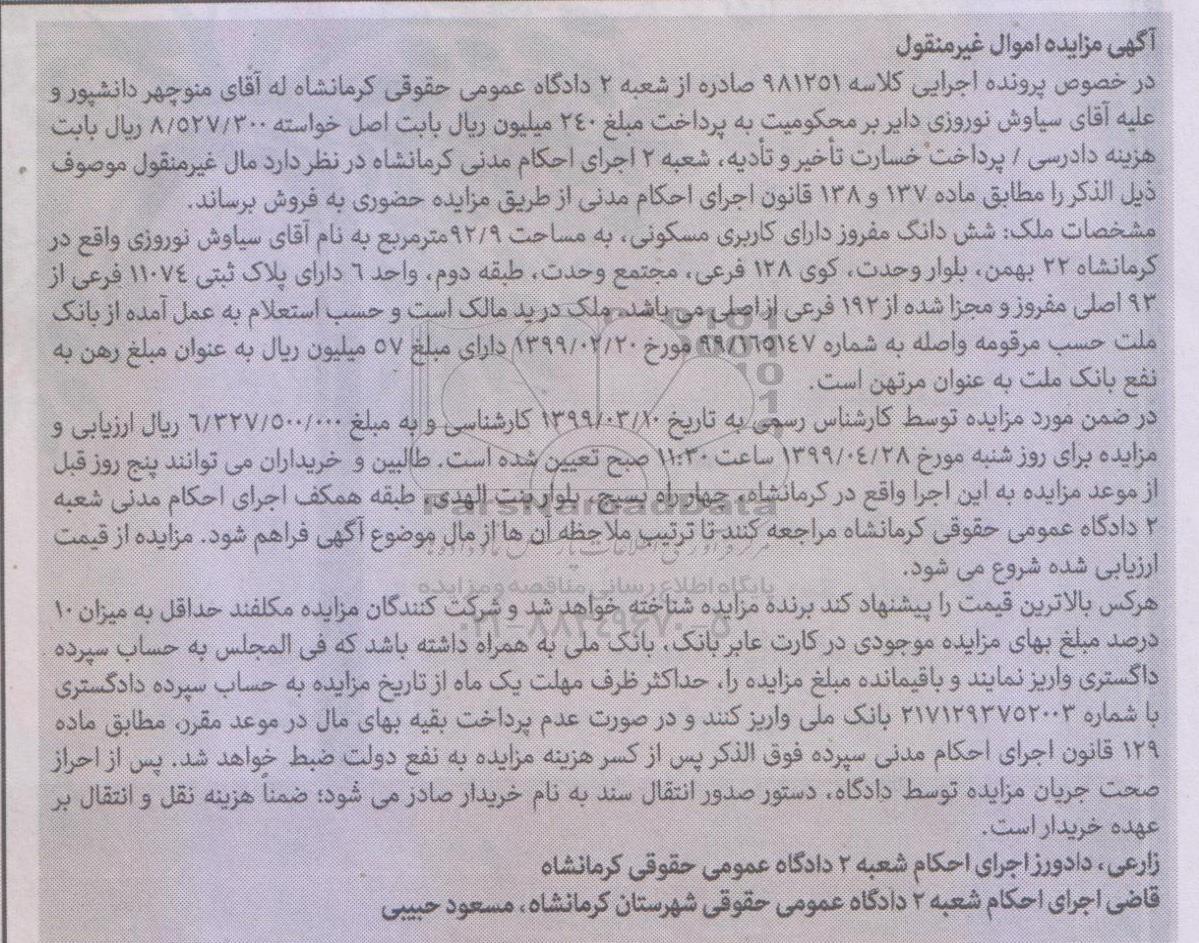 آگهی مزایده اموال غیرمنقول
در خصوص پرونده اجرایی کلاسه ۹۸۱۲۵۱ صادره از شعبه ۲ دادگاه عمومی حقوقی کرمانشاه له آقای منوچهر دانشپور و
علیه آقای سیاوش نوروزی دایر بر محکومیت به پرداخت مبلغ ۲۴۰ میلیون ریال بابت اصل خواسته ۸/۵۲۷/۳۰۰ ریال بابت
هزینه دادرسی / پرداخت خسارت تأخیر و تأدیه، شعبه ۲ اجرای احکام مدنی کرمانشاه در نظر دارد مال غیرمنقول موصوف
ذیل الذکر را مطابق ماده ۱۳۷ و ۱۳۸ قانون اجرای احکام مدنی از طریق مزایده حضوری به فروش برساند.
مشخصات ملک: شش دانگ مفروز دارای کاربری مسکونی، به مساحت ۹۲/۹مترمربع به نام آقای سیاوش نوروزی واقع در
کرمانشاه ۲۲ بهمن، بلوار وحدت، کوی ۱۲۸ فرعی، مجتمع وحدت، طبقه دوم، واحد ۶ دارای پلاک ثبتی ۱۱۰۷۴ فرعی از
۹۳ اصلی مفروز و مجزا شده از ۱۹۲ فرعی از اصلی می باشد. ملک در ید مالک است و حسب استعلام به عمل آمده از بانک
ملت حسب مرقومه واصله به شماره ۹۹/۱۶۵۱۴۷ مورخ ۱۳۹۹/۰۲/۲۰ دارای مبلغ ۵۷ میلیون ریال به عنوان مبلغ رهن به
نفع بانک ملت به عنوان مرتهن است.
در ضمن مورد مزایده توسط کارشناس رسمی به تاریخ ۱۳۹۹/۰۳/۱۰ کارشناسی و به مبلغ ۶/۳۲۷/۵۰۰/۰۰۰ ریال ارزیابی و
مزایده برای روز شنبه مورخ ۱۳۹۹/۰۴/۲۸ ساعت ۱۱:۳۰ صبح تعیین شده است. طالبین و خریداران می توانند پنج روز قبل
از موعد مزایده به این اجرا واقع در کرمانشاه، چهار راه بسیج، بلوار بنت الهدی، طبقه همکف اجرای احکام مدنی شعبه
۲ دادگاه عمومی حقوقی کرمانشاه مراجعه کنند تا ترتیب ملاحظه آن ها از مال موضوع آگهی فراهم شود. مزایده از قیمت
ارزیابی شده شروع می شود.
پایگاه اطلاع رسانی مناقصه و مزایده
هرکس بالاترین قیمت را پیشنهاد کند برنده مزایده شناخته خواهد شد و شرکت کنندگان مزایده مکلفند حداقل به میزان ۱۰
۰۲۱-۸۸۳۴۹۶۷۰-۵
درصد مبلغ بهای مزایده موجودی در کارت عابر بانک، بانک ملی به همراه داشته باشد که فی المجلس به حساب سپرده
داگستری واریز نمایند و باقیمانده مبلغ مزایده را، حداکثر ظرف مهلت یک ماه از تاریخ مزایده به حساب سپرده دادگستری
با شماره ۲۱۷۱۲۹۳۷۵۲۰۰۳ بانک ملی واریز کنند و در صورت عدم پرداخت بقیه بهای مال در موعد مقرر، مطابق ماده
۱۲۹ قانون اجرای احکام مدنی سپرده فوق الذکر پس از کسر هزینه مزایده به نفع دولت ضبط خواهد شد. پس از احراز
صحت جریان مزایده توسط دادگاه، دستور صدور انتقال سند به نام خریدار صادر می شود؛ ضمناً هزینه نقل و انتقال بر
عهده خریدار است.
زارعی، دادورز اجرای احکام شعبه ۲ دادگاه عمومی حقوقی کرمانشاه
قاضی اجرای احکام شعبه ۲ دادگاه عمومی حقوقی شهرستان کرمانشاه، مسعود حبیبی